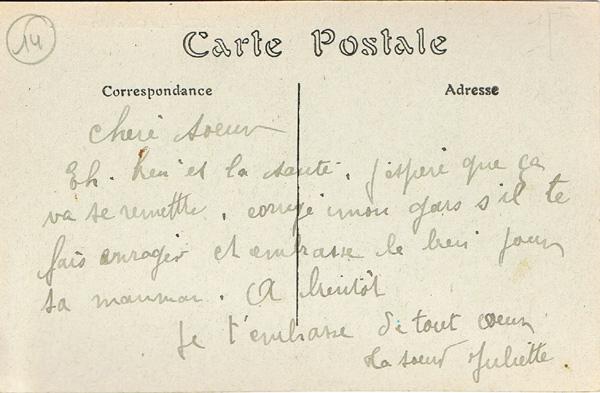 14
Carte Postale
Correspondance
Adresse
cheré soeur
Eh. bien et la santé. j'espere que ça
va se remettre. corrige mon gars s'il te
fais enrager et embrasse le bien pour
sa maman. A bientôt
Je t'embrasse de tout coeur
ta soeur Juliette